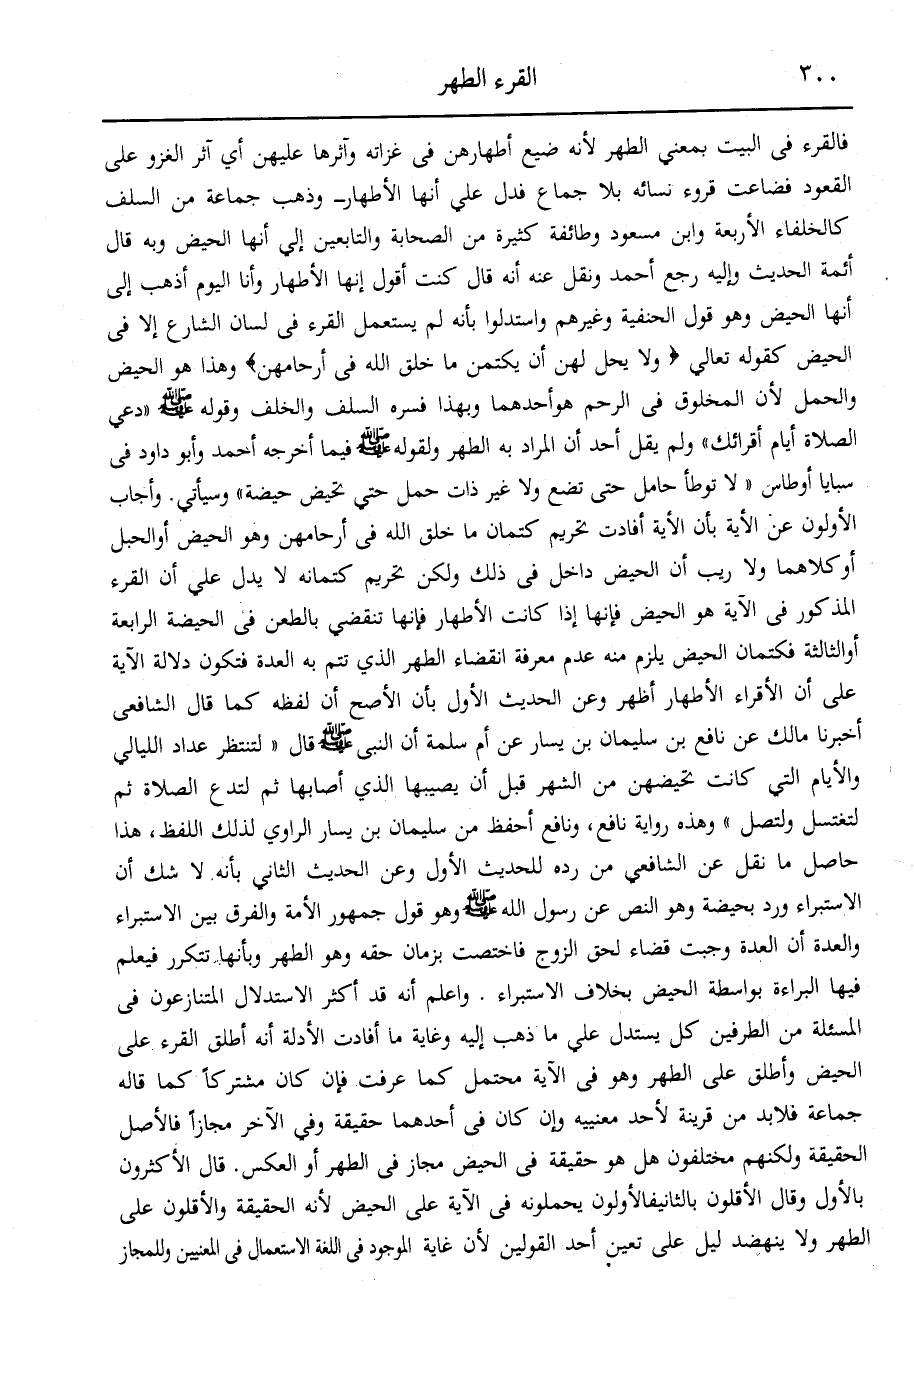 ٣٠٠
القرء الطهر
فالقرء فى البيت بمعني الطهر لأنه ضيع أطهارهن فى غزاته وآثرها عليهن أي آثر الغزو على
القعود فضاعت قروء نسائه بلا جماع فدل علي أنها الأطهار_ وذهب جماعة من السلف
كالخلفاء الأربعة وابن مسعود وطائفة كثيرة من الصحابة والتابعين إلي أنها الحيض وبه قال
أئمة الحديث وإليه رجع أحمد ونقل عنه أنه قال كنت أقول إنها الأطهار وأنا اليوم أذهب إلى
أنها الحيض وهو قول الحنفية وغيرهم واستدلوا بأنه لم يستعمل القرء فى لسان الشارع إلا فى
الحيض كقوله تعالي ﴿ ولا يحل لهن أن يكتمن ما خلق الله فى أرحامهن﴾ وهذا هو الحيض
والحمل لأن المخلوق فى الرحم هوأحدهما وبهذا فسره السلف والخلف وقوله ﷺ «دعي
الصلاة أيام أقرائك» ولم يقل أحد أن المراد به الطهر ولقوله ﷺ فيما أخرجه أحمد وأبو داود فى
سبايا أوطاس « لا توطأ حامل حتى تضع ولا غير ذات حمل حتي تحيض حيضة» وسيأتي. وأجاب
الأولون عن الأية بأن الأية أفادت تحريم كتمان ما خلق الله فى أرحامهن وهو الحيض أوالحبل
أوكلاهما ولا ريب أن الحيض داخل فى ذلك ولكن تحريم كتمانه لا يدل علي أن القرء
المذكور فى الآية هو الحيض فإنها إذا كانت الأطهار فإنها تنقضي بالطعن فى الحيضة الرابعة
أوالثالثة فكتمان الحيض يلزم منه عدم معرفة انقضاء الطهر الذي تتم به العدة فتكون دلالة الآية
على أن الأقراء الأطهار أظهر وعن الحديث الأول بأن الأصح أن لفظه كما قال الشافعى
أخبرنا مالك عن نافع بن سليمان بن يسار عن أم سلمة أن النبى ﷺ قال « لتنتظر عداد الليالي
والأيام التي كانت تحيضهن من الشهر قبل أن يصيبها الذي أصابها ثم لتدع الصلاة ثم
لتغتسل ولتصل » وهذه رواية نافع، ونافع أحفظ من سليمان بن يسار الراوي لذلك اللفظ، هذا
حاصل ما نقل عن الشافعي من رده للحديث الأول وعن الحديث الثاني بأنه لا شك أن
الاستبراء ورد بحيضة وهو النص عن رسول الله ﷺ وهو قول جمهور الأمة والفرق بين الاستبراء
والعدة أن العدة وجبت قضاء لحق الزوج فاختصت بزمان حقه وهو الطهر وبأنها تتكرر فيعلم
فيها البراءة بواسطة الحيض بخلاف الاستبراء . واعلم أنه قد أكثر الاستدلال المتنازعون فى
المسئلة من الطرفين كل يستدل علي ما ذهب إليه وغاية ما أفادت الأدلة أنه أطلق القرء على
الحيض وأطلق على الطهر وهو فى الآية محتمل كما عرفت فإن كان مشتركاً كما قاله
جماعة فلابد من قرينة لأحد معنييه وإن كان فى أحدهما حقيقة وفي الآخر مجازاً فالأصل
الحقيقة ولكنهم مختلفون هل هو حقيقة فى الحيض مجاز فى الطهر أو العكس. قال الأكثرون
بالأول وقال الأقلون بالثانيفالأولون يحملونه فى الآية على الحيض لأنه الحقيقة والأقلون على
الطهر ولا ينهضد ليل على تعين أحد القولين لأن غاية الموجود فى اللغة الاستعمال فى المعنيين وللمجاز